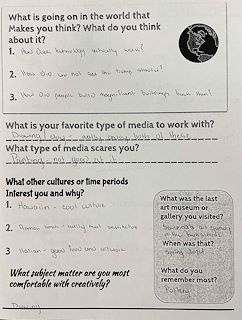 What is going on in the world that
Makes you think? What do you think
about it?
1. How does technology actually work?
2. How did we not see the trump shooter?
3. How did people build magnificent buildings back then?
What is your favorite type of media to work with?
Drawing
What type of media scares you?
Painting - not good at it
What other cultures or time periods
Interest you and why?
1. Hawaiian - cool culture
2. Roman
3. Italian - good food and
What subject matter are you most
comfortable with creatively?
Drawing
What was the last
art museum or
gallery you visited?
When was that?
What do you
remember most?
Pottery